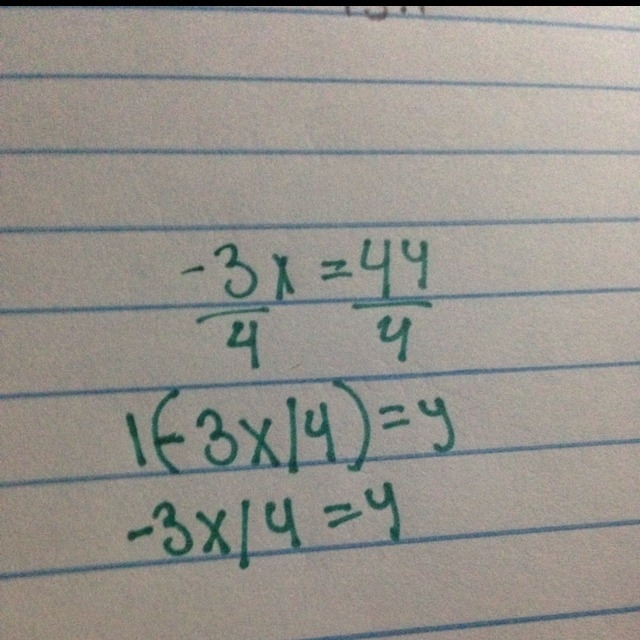 -3x = 4y
4 4
1(-3x/4) = y
-3x/4 = y